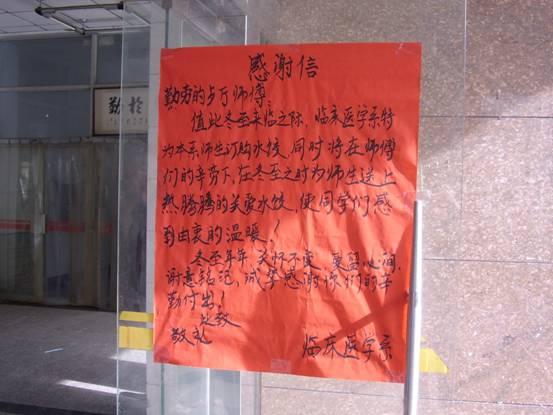 感谢信
勤劳的与方师傅:
值此冬至来临之际,临床医学系特
为本系师生订购水饺,同时将在师傅
们的辛劳下,在冬至之时为师生送上
热腾腾的关爱水饺,使同学们感
到由衷的温暖!
冬至年年,关怀不变,爱留心涧,
谢意铭记,诚挚感谢你们的辛
勤付出!
此致
敬礼
临床医学系
勤於